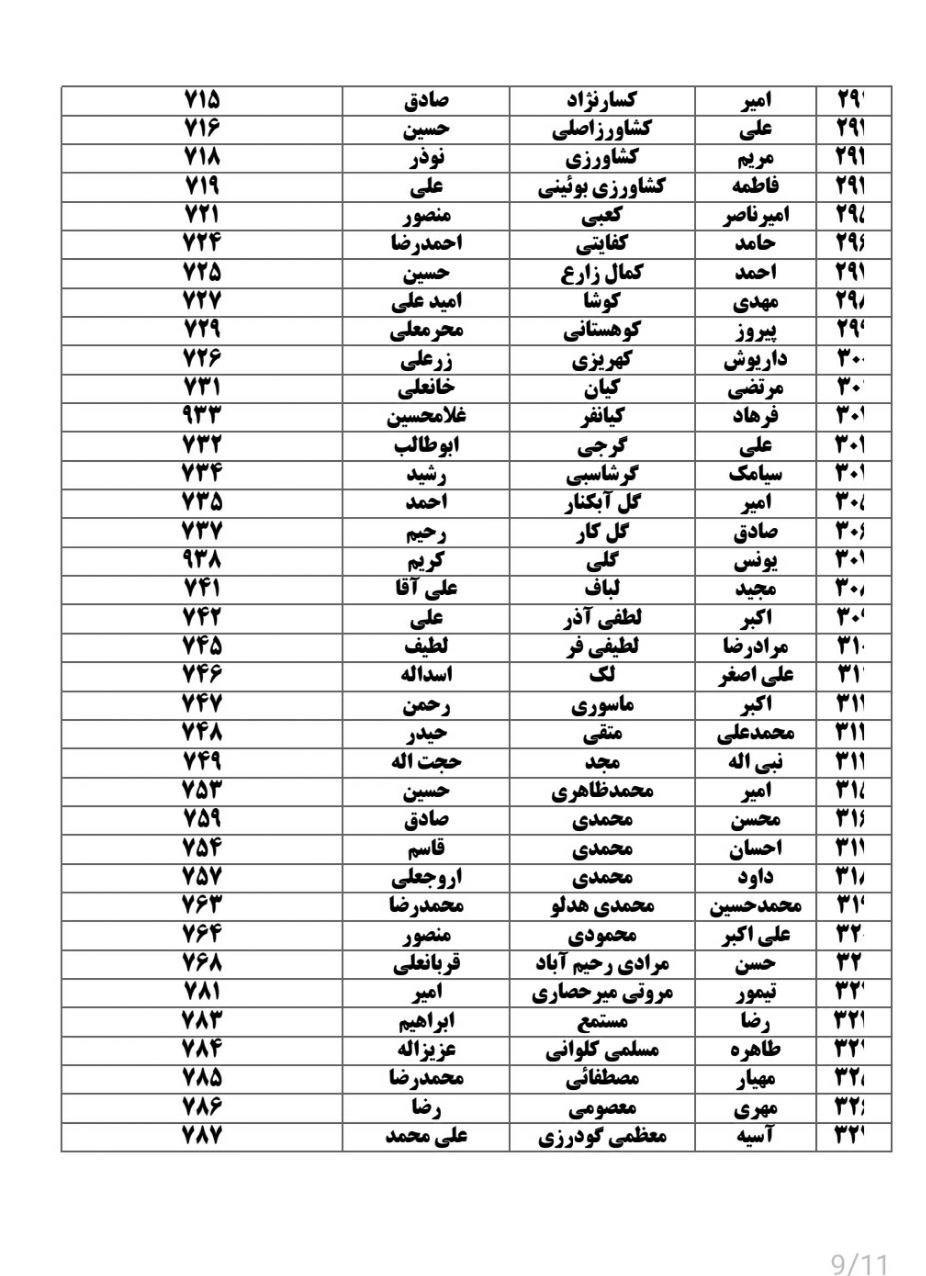 ۲۹ امیر کسارنژاد صادق ۷۱۵
۲۹ علی کشاورزاصلی حسین ۷۱۶
۲۹ مریم کشاورزی نوذر ۷۱۸
۲۹ فاطمه کشاورزی بوئینی علی ۷۱۹
۲۹ امیرناصر کعبی منصور ۷۲۱
۲۹ حامد کفایتی احمدرضا ۷۲۴
۲۹ احمد کمال زارع حسین ۷۲۵
۲۹ مهدی کوشا امید علی ۷۲۷
۲۹ پیروز کوهستانی محرمعلی ۷۲۹
۳۰ داریوش کهریزی زرعلی ۷۲۶
۳۰ مرتضی کیان خانعلی ۷۳۱
۳۰ فرهاد کیانفر غلامحسین ۹۳۳
۳۰ علی گرجی ابوطالب ۷۳۲
۳۰ سیامک گرشاسبی رشید ۷۳۴
۳۰ امیر گل آبکنار احمد ۷۳۵
۳۰ صادق گل کار رحیم ۷۳۷
۳۰ یونس گلی کریم ۹۳۸
۳۰ مجید لباف علی آقا ۷۴۱
۳۰ اکبر لطفی آذر علی ۷۴۲
۳۱ مرادرضا لطیفی فر لطیف ۷۴۵
۳۱ علی اصغر لک اسداله ۷۴۶
۳۱ اکبر ماسوری رحمن ۷۴۷
۳۱ محمدعلی متقی حیدر ۷۴۸
۳۱ نبی اله مجد حجت اله ۷۴۹
۳۱ امیر محمدظاهری حسین ۷۵۳
۳۱ محسن محمدی صادق ۷۵۹
۳۱ احسان محمدی قاسم ۷۵۴
۳۱ داود محمدی اروجعلی ۷۵۷
۳۱ محمدحسین محمدی هدلو محمدرضا ۷۶۳
۳۲ علی اکبر محمودی منصور ۷۶۴
۳۲ حسن مرادی رحیم آباد قربانعلی ۷۶۸
۳۲ تیمور مروتی میرحصاری امیر ۷۸۱
۳۲ رضا مستمع ابراهیم ۷۸۳
۳۲ طاهره مسلمی کلوانی عزیزاله ۷۸۴
۳۲ مهیار مصطفائی محمدرضا ۷۸۵
۳۲ مهری معصومی رضا ۷۸۶
۳۲ آسیه معظمی گودرزی علی محمد ۷۸۷
9/11